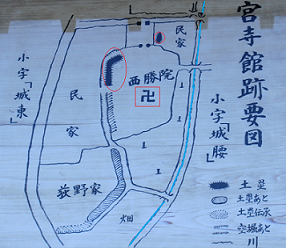 宮寺館跡要図
民家
小字「城東」
民家
西勝院
卍
小字「城腰」
荻野家
畑
土塁
土塁あと
土塁伝承
空堀あと
川